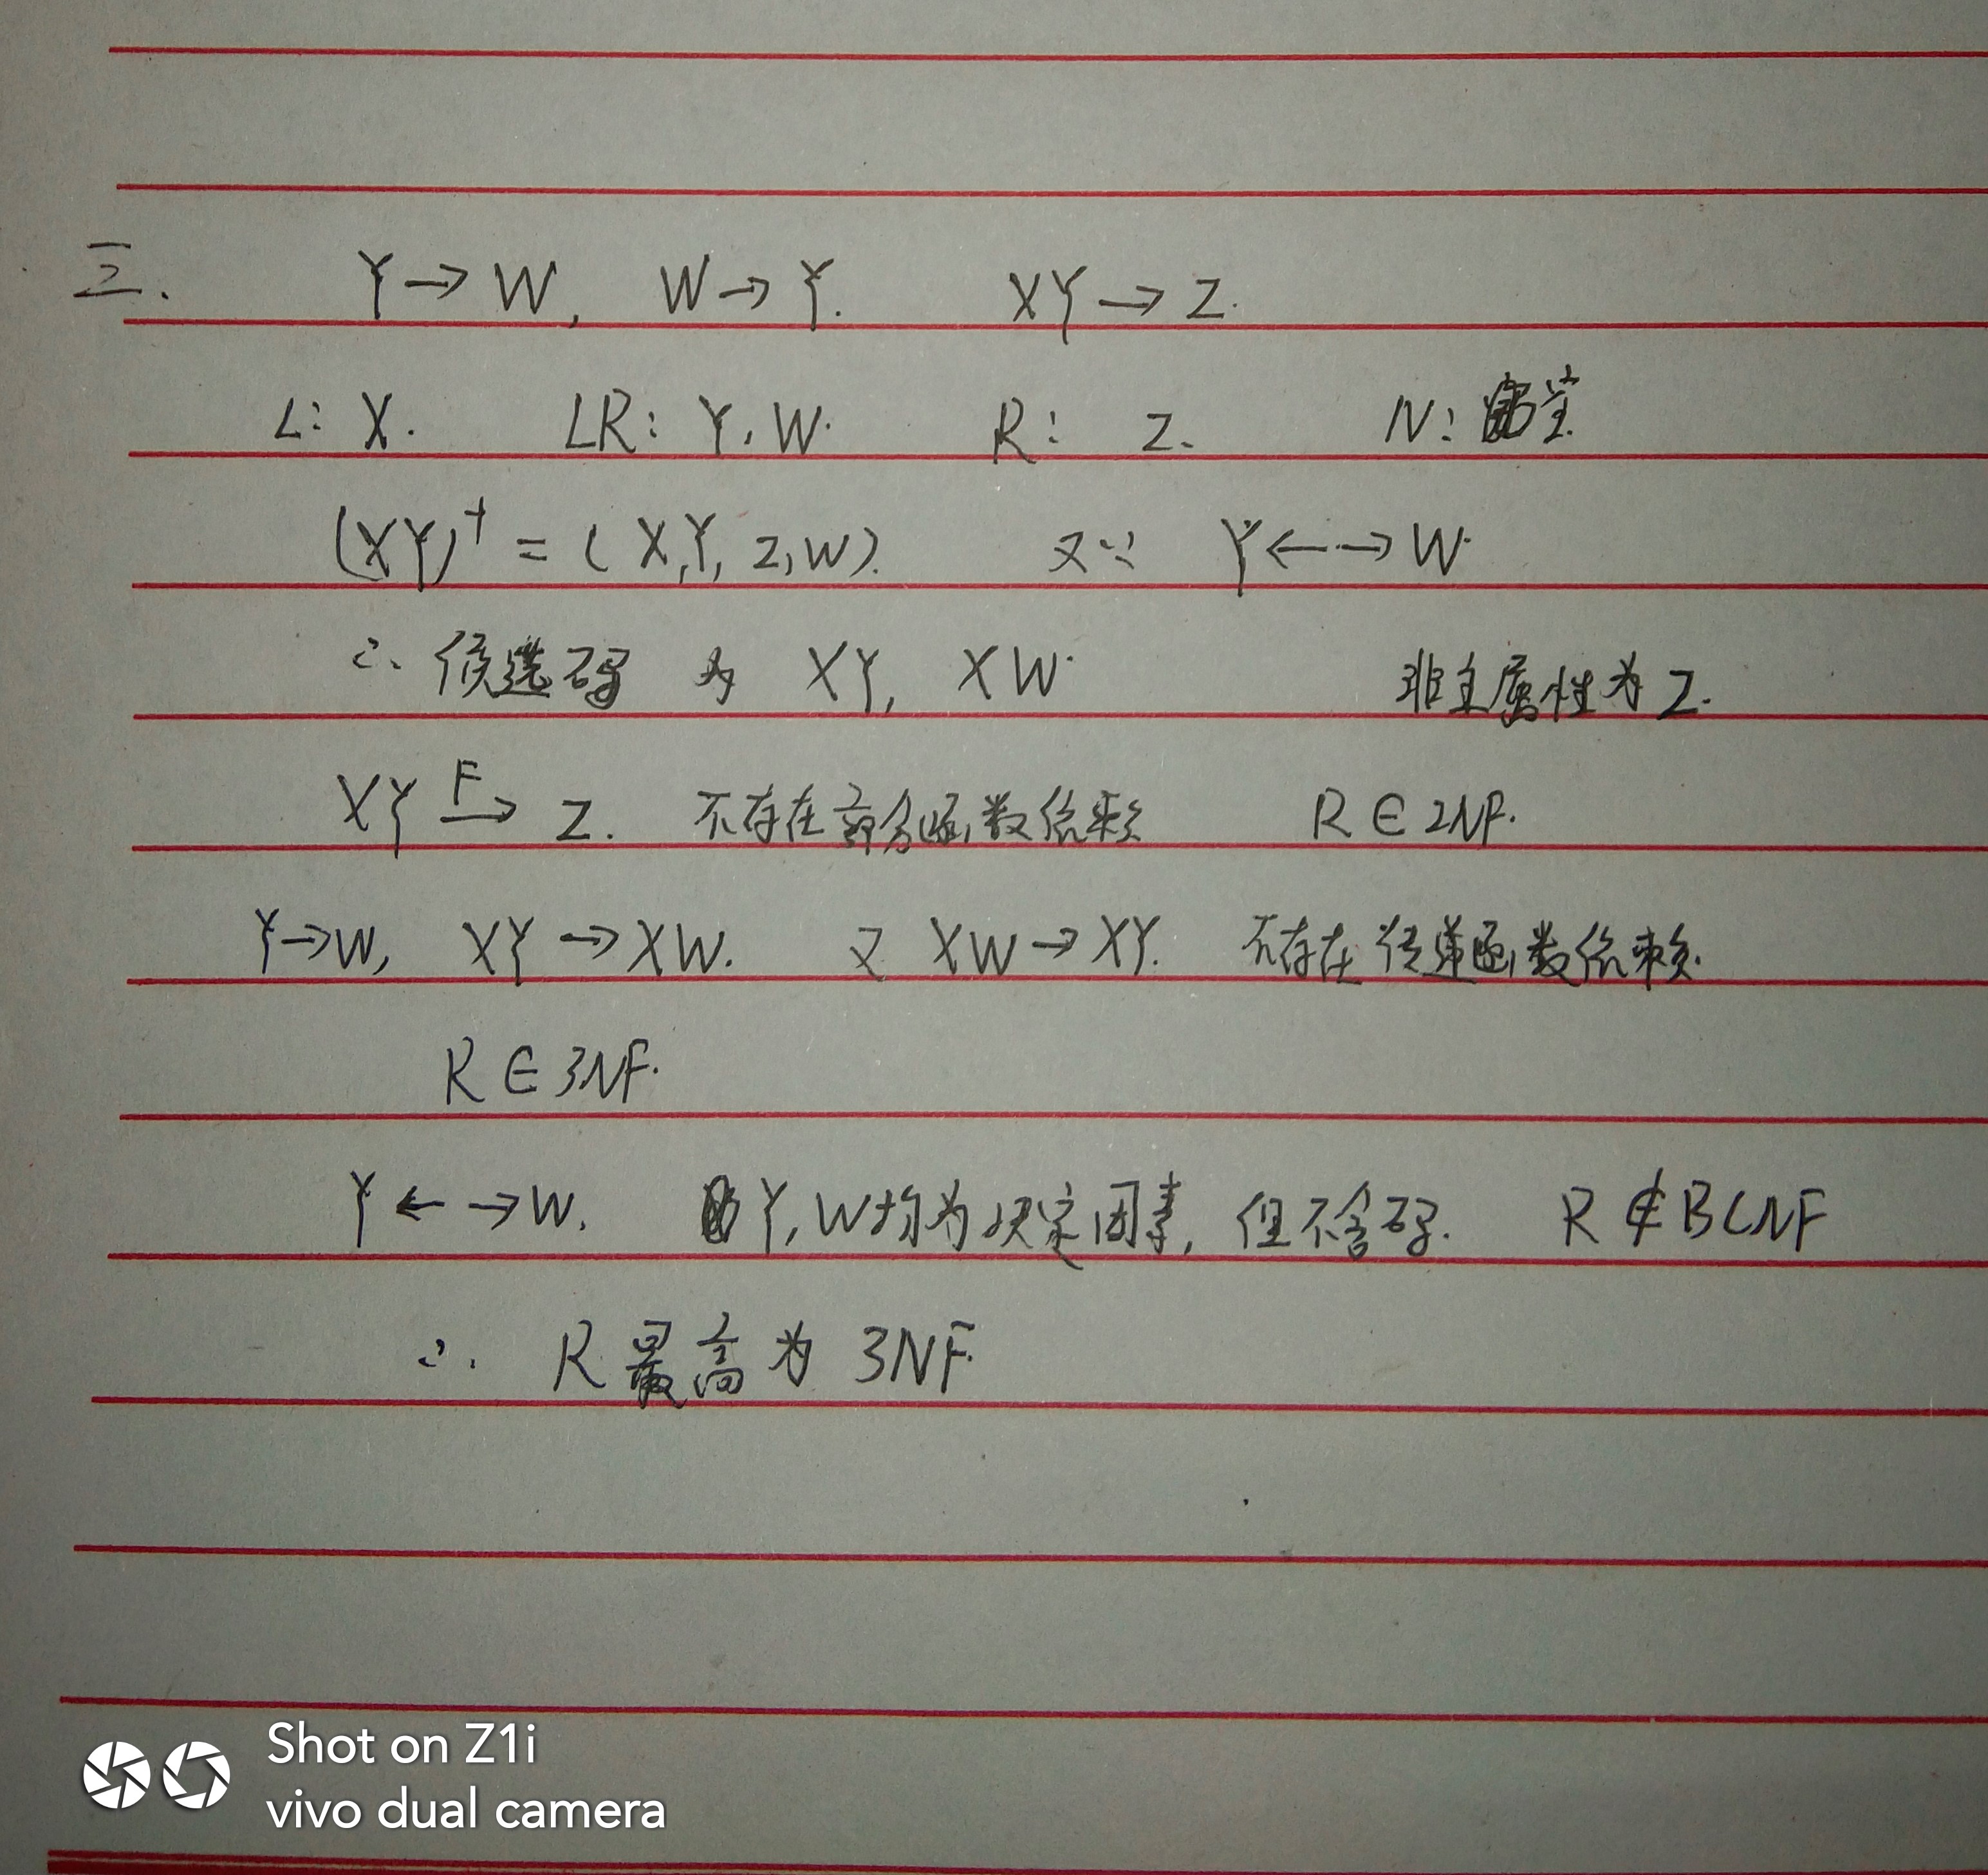 三. Y → W, W → Y. XY → Z.
L: X. LR: Y, W. R: Z. N: 空.
(XY)⁺ = (X,Y,Z,W). 又∵ Y ←→ W.
∴ 候选码 为 XY, XW. 非主属性为 Z.
XY F→ Z. 不存在部分函数依赖 R ∈ 2NF.
Y→W, XY → XW. 又 XW → XY. 不存在传递函数依赖.
R ∈ 3NF.
Y ←→ W. Y, W均为决定因素, 但不含码. R ∉ BCNF
∴. R 最高为 3NF.
Shot on Z1i
vivo dual camera